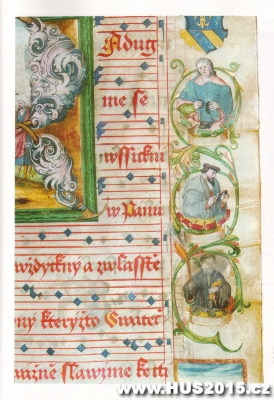 Radug
me se
wssickni
w Panu
wzdyckny a zwlasstě
ny kteryžto Swatei
važně slawime ke cti
www.HUS2015.cz